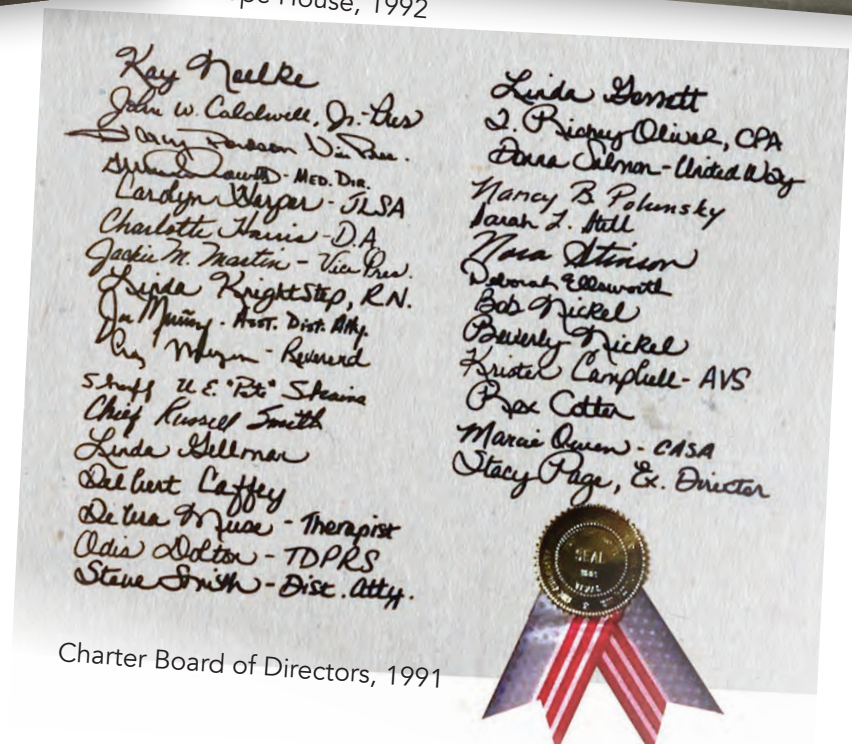 House, 1992
Kay Noelke
John W. Caldwell, Jr. - Pres
Vice Pres.
- MED. DIR.
Carolyn Harper - JLSA
Charlotte Harris - D.A.
Jackie M. Martin - Vice Pres.
Linda KnightStep, R.N.
Joe Muñoz - Asst. Dist. Atty.
Craig - Reverend
Sheriff U.E. "Pete" Skains
Chief Russell Smith
Linda Gellman
Delbert Caffey
De'Lila Muse - Therapist
Odis Dolton - TDPRS
Steve Smith - Dist. Atty.
Linda
J. Richey Oliver, CPA
Donna Salmon - United Way
Nancy B. Polunsky
Sarah L. Hill
Nora Stinson
Deborah Ellsworth
Bob Nickel
Beverly Nickel
Kristen Campbell - AVS
Rex Cotten
Marcie Owen - CASA
Stacy Page, Ex. Director
SEAL
Charter Board of Directors, 1991